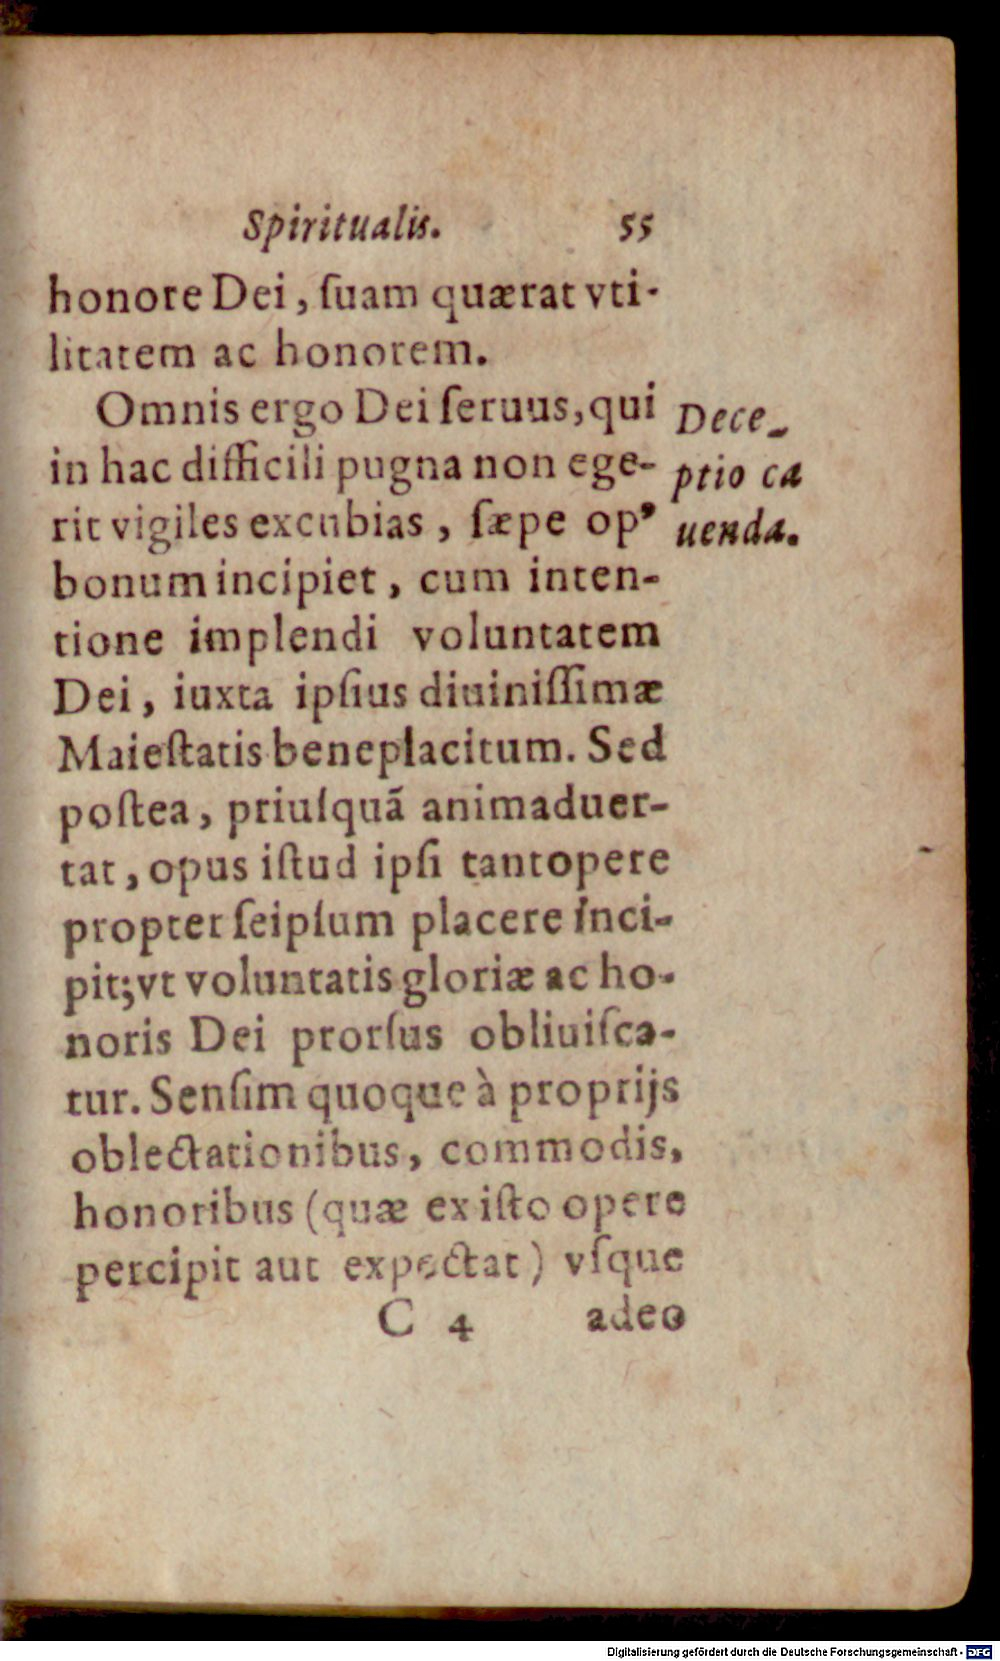 Spiritualis. 55
honore Dei, ſuam quærat vti-
litatem ac honorem.
Omnis ergo Dei ſeruus, qui
in hac difficili pugna non ege-
rit vigiles excubias, ſæpe opꝰ
bonum incipiet, cum inten-
tione implendi voluntatem
Dei, iuxta ipſius diuiniſſimæ
Maieſtatis beneplacitum. Sed
poſtea, priuſquã animaduer-
tat, opus iſtud ipſi tantopere
propter ſeipſum placere inci-
pit; vt voluntatis gloriæ ac ho-
noris Dei prorſus obliuiſca-
tur. Senſim quoque à proprijs
oblectationibus, commodis,
honoribus (quæ ex iſto opere
percipit aut expectat) vſque
C 4 adeo
Dece-
ptio ca
uenda.
Digitalisierung gefördert durch die Deutsche Forschungsgemeinschaft - DFG